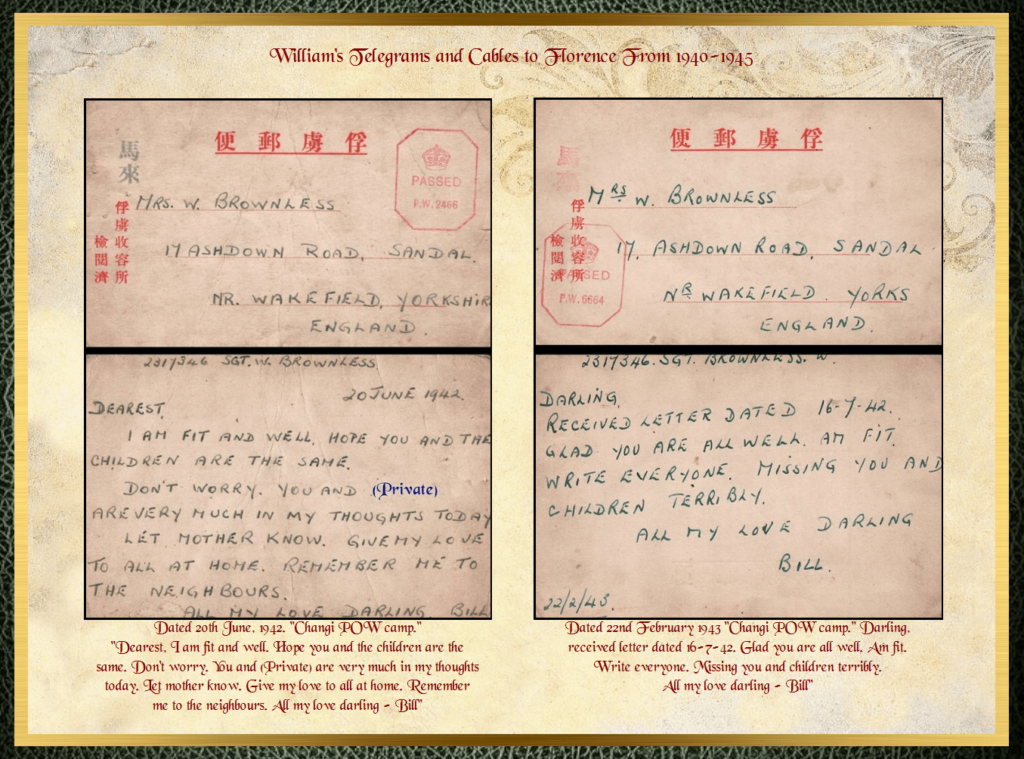 William's Telegrams and Cables to Florence From 1940-1945
俘虜郵便
馬來
PASSED
P.W. 2466
俘虜收容所
檢閱濟
MRS. W. BROWNLESS
17 ASHDOWN ROAD, SANDAL.
NR. WAKEFIELD, YORKSHIR
ENGLAND.
2317346 SGT. W. BROWNLESS
20 JUNE 1942.
DEAREST,
I AM FIT AND WELL. HOPE YOU AND THE
CHILDREN ARE THE SAME.
DON'T WORRY. YOU AND (Private)
ARE VERY MUCH IN MY THOUGHTS TODAY
LET MOTHER KNOW. GIVE MY LOVE
TO ALL AT HOME. REMEMBER ME TO
THE NEIGHBOURS.
ALL MY LOVE DARLING BILL
Dated 20th June, 1942. "Changi POW camp."
"Dearest, I am fit and well. Hope you and the children are the
same. Don't worry. You and (Private) are very much in my thoughts
today. Let mother know. Give my love to all at home. Remember
me to the neighbours. All my love darling - Bill"
俘虜郵便
馬來
俘虜收容所
檢閱濟
PASSED
P.W. 6664
MRS W. BROWNLESS
17, ASHDOWN ROAD, SANDAL
NR WAKEFIELD. YORKS
ENGLAND.
2317346. SGT. BROWNLESS. W.
DARLING,
RECEIVED LETTER DATED 16-7-42.
GLAD YOU ARE ALL WELL. AM FIT.
WRITE EVERYONE. MISSING YOU AND
CHILDREN TERRIBLY.
ALL MY LOVE DARLING
BILL.
22/2/43.
Dated 22nd February 1943 "Changi POW camp." Darling,
received letter dated 16-7-42. Glad you are all well, Am fit.
Write everyone. Missing you and children terribly.
All my love darling - Bill"